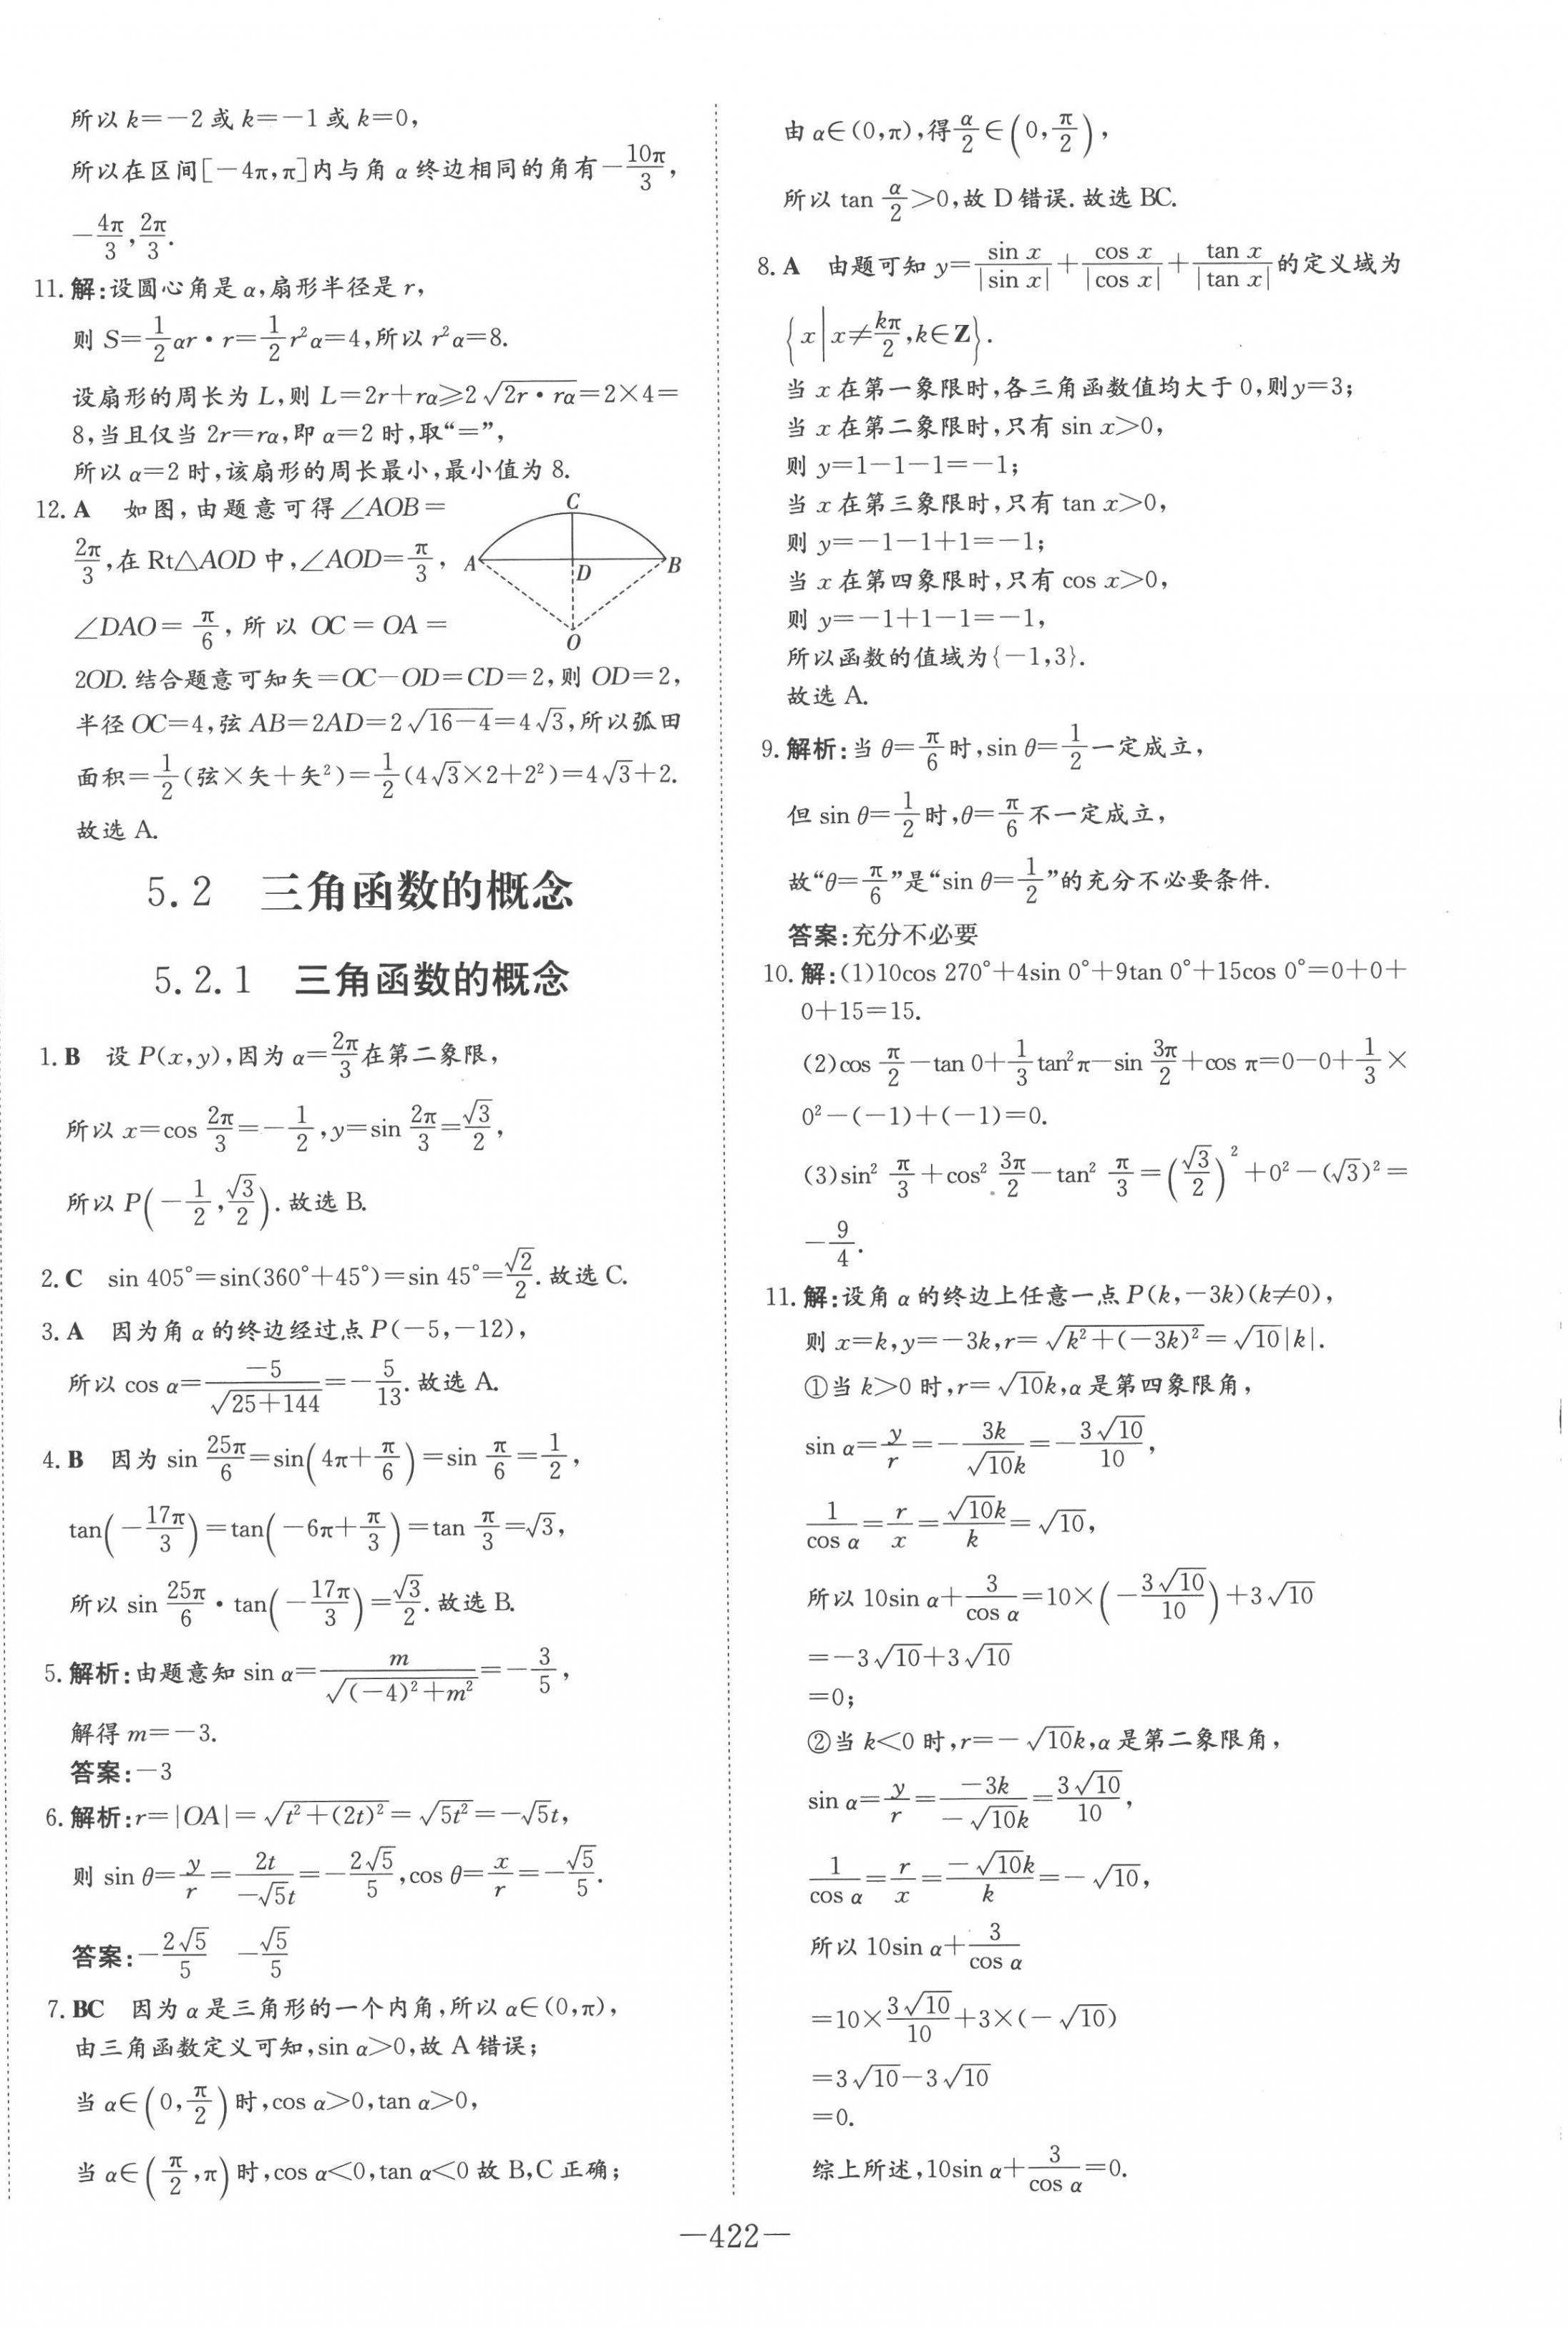 所以 k=-2 或 k=-1 或 k=0,
所以在区间[-4π,π]内与角 α 终边相同的角有 -10π/3,
-4π/3, 2π/3.
11. 解:设圆心角是 α,扇形半径是 r,
则 S=1/2 αr·r=1/2 r²α=4,所以 r²α=8.
设扇形的周长为 L,则 L=2r+rα≥2√(2r·rα)=2×4=
8,当且仅当 2r=rα,即 α=2 时,取“=”,
所以 α=2 时,该扇形的周长最小,最小值为 8.
12. A 如图,由题意可得∠AOB=
2π/3,在 Rt△AOD 中,∠AOD=π/3,
∠DAO=π/6,所以 OC=OA=
C
A
D
B
O
2OD. 结合题意可知矢=OC-OD=CD=2,则 OD=2,
半径 OC=4,弦 AB=2AD=2√(16-4)=4√3,所以弧田
面积=1/2(弦×矢+矢²)=1/2(4√3×2+2²)=4√3+2.
故选 A.
5.2 三角函数的概念
5.2.1 三角函数的概念
1. B 设 P(x,y),因为 α=2π/3在第二象限,
所以 x=cos 2π/3=-1/2,y=sin 2π/3=√3/2,
所以 P(-1/2,√3/2). 故选 B.
2. C sin 405°=sin(360°+45°)=sin 45°=√2/2. 故选 C.
3. A 因为角 α 的终边经过点 P(-5,-12),
所以 cos α=-5/√(25+144)=-5/13. 故选 A.
4. B 因为 sin 25π/6=sin(4π+π/6)=sin π/6=1/2,
tan(-17π/3)=tan(-6π+π/3)=tan π/3=√3,
所以 sin 25π/6·tan(-17π/3)=√3/2. 故选 B.
5. 解析:由题意知 sin α=m/√((-4)²+m²)=-3/5,
解得 m=-3.
答案:-3
6. 解析:r=|OA|=√(t²+(2t)²)=√(5t²)=-√5t,
则 sin θ=y/r=2t/(-√5t)=-2√5/5,cos θ=x/r=-√5/5.
答案:-2√5/5 -√5/5
7. BC 因为 α 是三角形的一个内角,所以 α∈(0,π),
由三角函数定义可知,sin α>0,故 A 错误;
当 α∈(0,π/2)时,cos α>0,tan α>0,
当 α∈(π/2,π)时,cos α<0,tan α<0 故 B,C 正确;
由 α∈(0,π),得α/2∈(0,π/2),
所以 tan α/2>0,故 D 错误. 故选 BC.
8. A 由题可知 y=sin x/|sin x|+cos x/|cos x|+tan x/|tan x|的定义域为
{x|x≠kπ/2,k∈Z}.
当 x 在第一象限时,各三角函数值均大于 0,则y=3;
当 x 在第二象限时,只有 sin x>0,
则 y=1-1-1=-1;
当 x 在第三象限时,只有 tan x>0,
则 y=-1-1+1=-1;
当 x 在第四象限时,只有 cos x>0,
则 y=-1+1-1=-1,
所以函数的值域为{-1,3}.
故选 A.
9. 解析:当 θ=π/6时,sin θ=1/2一定成立,
但 sin θ=1/2时,θ=π/6不一定成立,
故“θ=π/6”是“sin θ=1/2”的充分不必要条件.
答案:充分不必要
10. 解:(1)10cos 270°+4sin 0°+9tan 0°+15cos 0°=0+0+
0+15=15.
(2)cos π/2-tan 0+1/3 tan²π-sin 3π/2+cos π=0-0+1/3×
0²-(-1)+(-1)=0.
(3)sin² π/3+cos² 3π/2-tan² π/3=(√3/2)²+0²-(√3)²=
-9/4.
11. 解:设角 α 的终边上任意一点 P(k,-3k)(k≠0),
则 x=k,y=-3k,r=√(k²+(-3k)²)=√10|k|.
①当 k>0 时,r=√10k,α 是第四象限角,
sin α=y/r=-3k/√10k=-3√10/10,
1/cos α=r/x=√10k/k=√10,
所以 10sin α+3/cos α=10×(-3√10/10)+3√10
=-3√10+3√10
=0;
②当 k<0 时,r=-√10k,α 是第二象限角,
sin α=y/r=-3k/-√10k=3√10/10,
1/cos α=r/x=-√10k/k=-√10,
所以 10sin α+3/cos α
=10×3√10/10+3×(-√10)
=3√10-3√10
=0.
综上所述,10sin α+3/cos α=0.
—422—